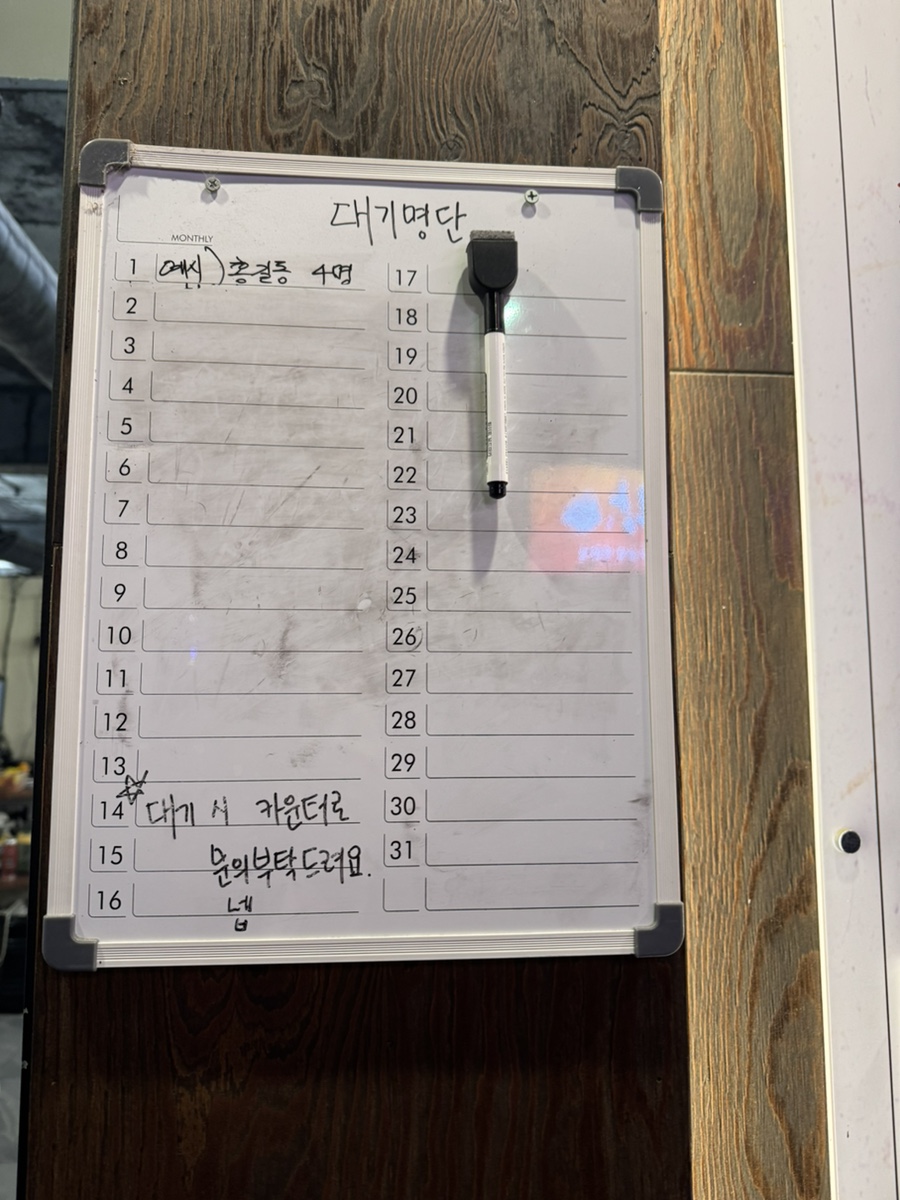 대기명단
MONTHLY
1 예시) 홍길동 4명
2
3
4
5
6
7
8
9
10
11
12
13
14 ☆대기 시 카운터로
15 문의부탁드려요.
16 넵
17
18
19
20
21
22
23
24
25
26
27
28
29
30
31